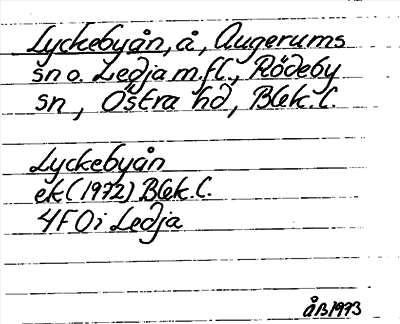 Lyckebyån, å, Augerums
sn o. Ledja m.fl., Rödeby
sn, Östra hd, Blek. l.
Lyckebyån
ek (1972) Blek. l.
4F 0i Ledja
åB 1973